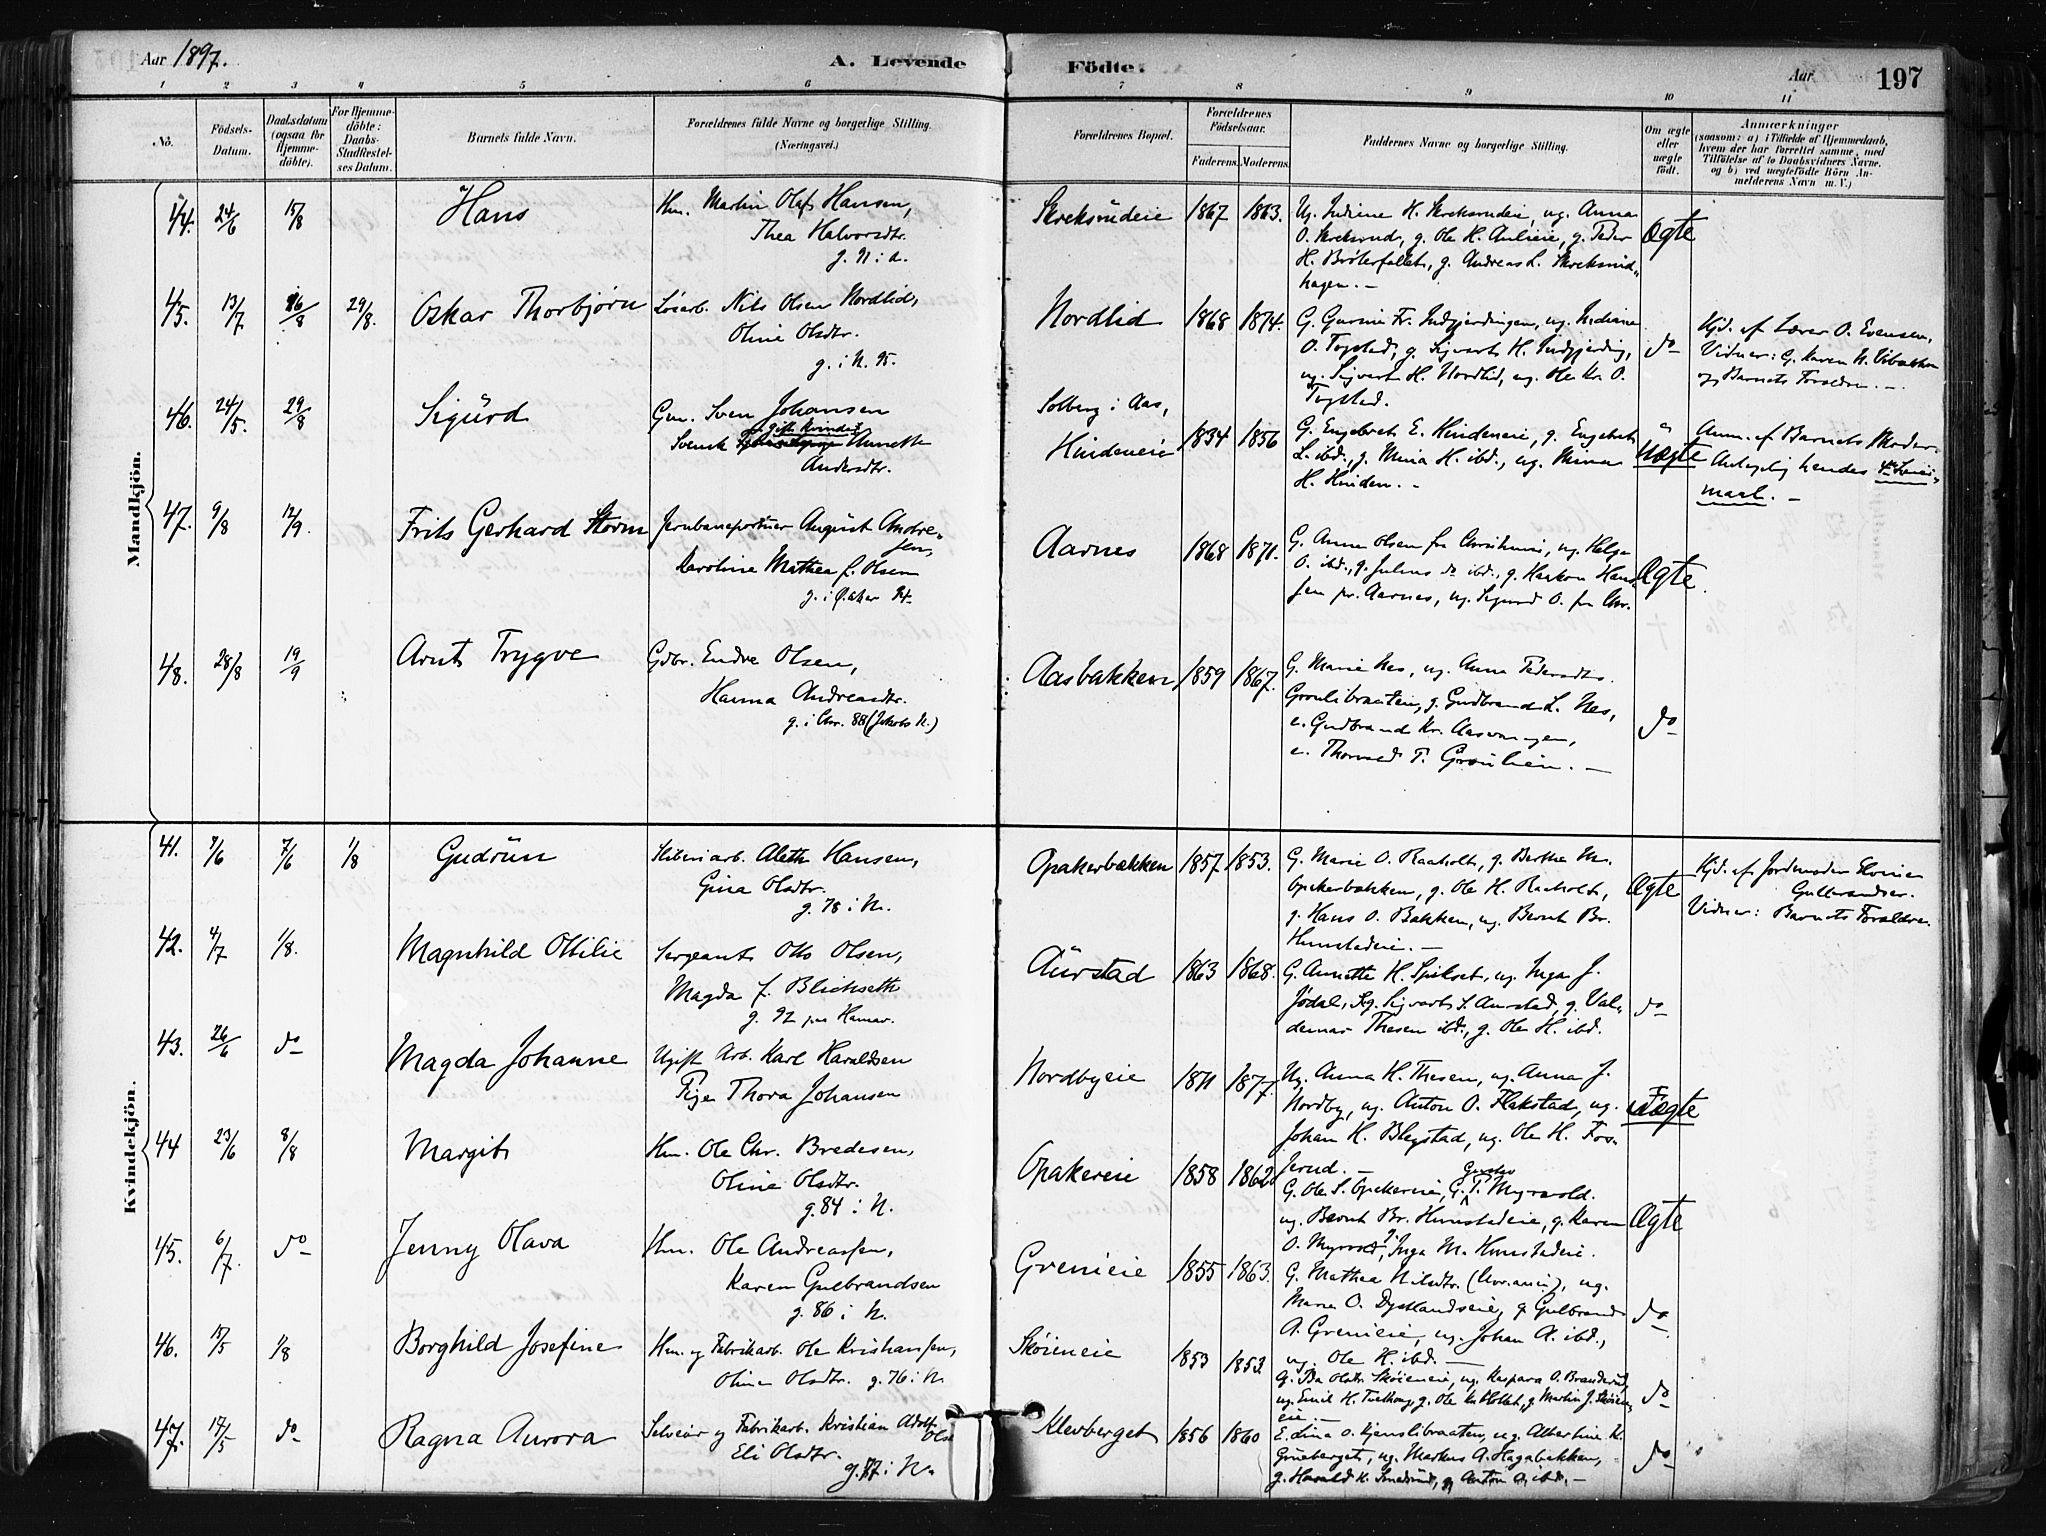 Aar 1897.
A. Levende Fødte.
Aar
197
1 2 3 4 5 6 7 8 9 10 11
No.
Fødsels-Datum.
Daabsdatum (ogsaa for Hjemme-døbte).
For Hjemme-døbte: Daabs-Stadfæstel-ses Datum.
Barnets fulde Navn.
Forældrenes fulde Navne og borgerlige Stilling. (Næringsvei.)
Forældrenes Bopæl.
Forældrenes Fødselsaar.
Faderens. Moderens.
Faddernes Navne og borgerlige Stilling.
Om ægte eller uægte født.
Anmærkninger (saasom: a) i Tilfælde af Hjemmedaab, hvem der har forrettet samme, med Tilføielse af to Daabsvidners Navne, og b) ved uægtefødte Børn An-melderens Navn m. V.)
Mandkjön.
44. 24/6 15/8 Hans Hm. Martin Olaf Hansen,
Thea Halvorsdtr.
g. N: a.
Skreksrudeie 1867 1863. Ug. Indiane H. Skreksrudeie, ug. Anna
O. Skreksrud, g. Ole H. Aulieie, g. Peder
H. Bråterfallet, g. Andreas L. Skreksrud-
hagen. —
Ægte
45. 13/7 26/8 29/8. Oskar Thorbjørn Løsarb. Nils Olsen Nordlid,
Oline Olsdtr.
g. i N. 95.
Nordlid 1868 1874. G. Gurine Fr. Indgjerdingen, ug. Indiane
O. Togstad, g. Sigvart H. Indgjerding,
ug. Sigvart H. Nordlid, ug. Ole Kr. O.
Togstad.
do
Hjd. af Lærer O. Evensen,
Vidner: G. Karen N. Vibakken
og Barnets Forældre. —
46. 24/5. 29/8 Sigurd Gm. Sven Johansen
gift Kvinde
Svensk Annette
Andersdtr.
Solberg i Aas,
Hindeneie 1834 1856 G. Engebret E. Hindeneie, g. Engebret
L. ibd., g. Mina H. ibd., ug. Mina
H. Hinden. —
Uægte
Anm. af Barnets Moder
Antagelig hendes 4de Leier-
maal. —
47. 9/8 12/9. Frits Gerhard Storm Jernbaneportner August Andre-
sen,
Karoline Mathea f. Olsen
g. i Ø. Aker 94
Aarnes 1868 1871. G. Anna Olsen fra Christiania, ug. Helga
O. ibd., g. Julius do ibd., g. Haakon Han-
sen pr. Aarnes, ug. Sigurd O. fra Chr.
Ægte.
48. 28/8 19/9 Arnt Trygve Gdbr. Endre Olsen,
Hanna Andreasdtr.
g. i Chr. 88 (Jakobs K.)
Aasbakken 1859 1867. G. Marie Nes, ug. Anna Pedersdtr.
Grønlibraaten, g. Gudbrand L. Nes,
e. Gudbrand Kr. Aasvangen,
e. Thorvald P. Grønlien. —
do
Kvindekjön.
41. 7/6 7/6 1/8 Gudrun Sliberiarb. Aleth Hansen,
Gina Olsdtr.
g. 78 i N.
Opakerbakken 1857 1853. G. Marie O. Raaholt, g. Berthe M.
Opakerbakken, g. Ole H. Raaholt,
g. Hans O. Bakken, ug. Bernt Br.
Hunstadeie. —
Ægte
Hjd. af Jordemoder
Gulbrandsen.
Vidner: Barnets Forældre.
42. 4/7 1/8. Magnhild Ottilie Sergeant Otto Olsen,
Magda f. Blichseth
g. 92 paa Hamar.
Aurstad 1863 1868. G. Annette H. Spikset, ug. Inga J.
Jødal, Sg. Sigvart S. Aurstad, g. Val-
demar Thesen ibd., g. Ole H. ibd.
do
43. 26/6 do Magda Johanne Ugift Arb. Karl Haraldsen
Pige Thora Johansen
Nordbyeie 1871 1877. Ug. Anna H. Thesen, ug. Anna J.
Nordby, ug. Anton O. Flakstad, ug.
Johan H. Blegstad, ug. Ole H. Fos-
serud. —
Uægte
44 23/6 8/8 Margit Hm. Ole Chr. Bredesen,
Oline Olsdtr.
g. 84 i N.
Opakereie 1858 1862 G. Ole S. Opakereie, G. Gustav T. Myrvold.
ug. Bernt Br. Hunstadeie, g. Karen
O. Myrvold, Inga M. Hunstadeie.
Ægte
45. 6/7. do Jenny Olava Hm. Ole Andreassen,
Karen Gulbrandsen
g. 86 i N.
Grenieie 1855 1863. G. Mathea Nilsdtr. ug.
Maria O. Dystlandseie, g. Gulbrand
A. Grenieie, ug. Johan A. ibd.,
ug. Ole H. ibd. —
do
46. 15/5 1/8 Borghild Josefine Hm. og Fabrikarb. Ole Kristiansen,
Oline Olsdtr. g. 76 i N
Skøieneie 1853 1853. G. Ida Olsdtr. Skøieneie, ug. Kaspara O. Branderud,
ug. Emil H. g. Ole g. Martin J. Skøien-
eie. —
do
47. 17/5 do Ragna Aurora Selveier og Fabrikarb. Kristian Adolf
Olsen
Eli Olsdtr.
g. 77 i N.
Klevberget 1856 1860 Edina O. Kjenslibraaten, ug. Albertine K.
ug. Markus A. Hagabakken,
g. Harald K. g. Anton O. ibd. —
do